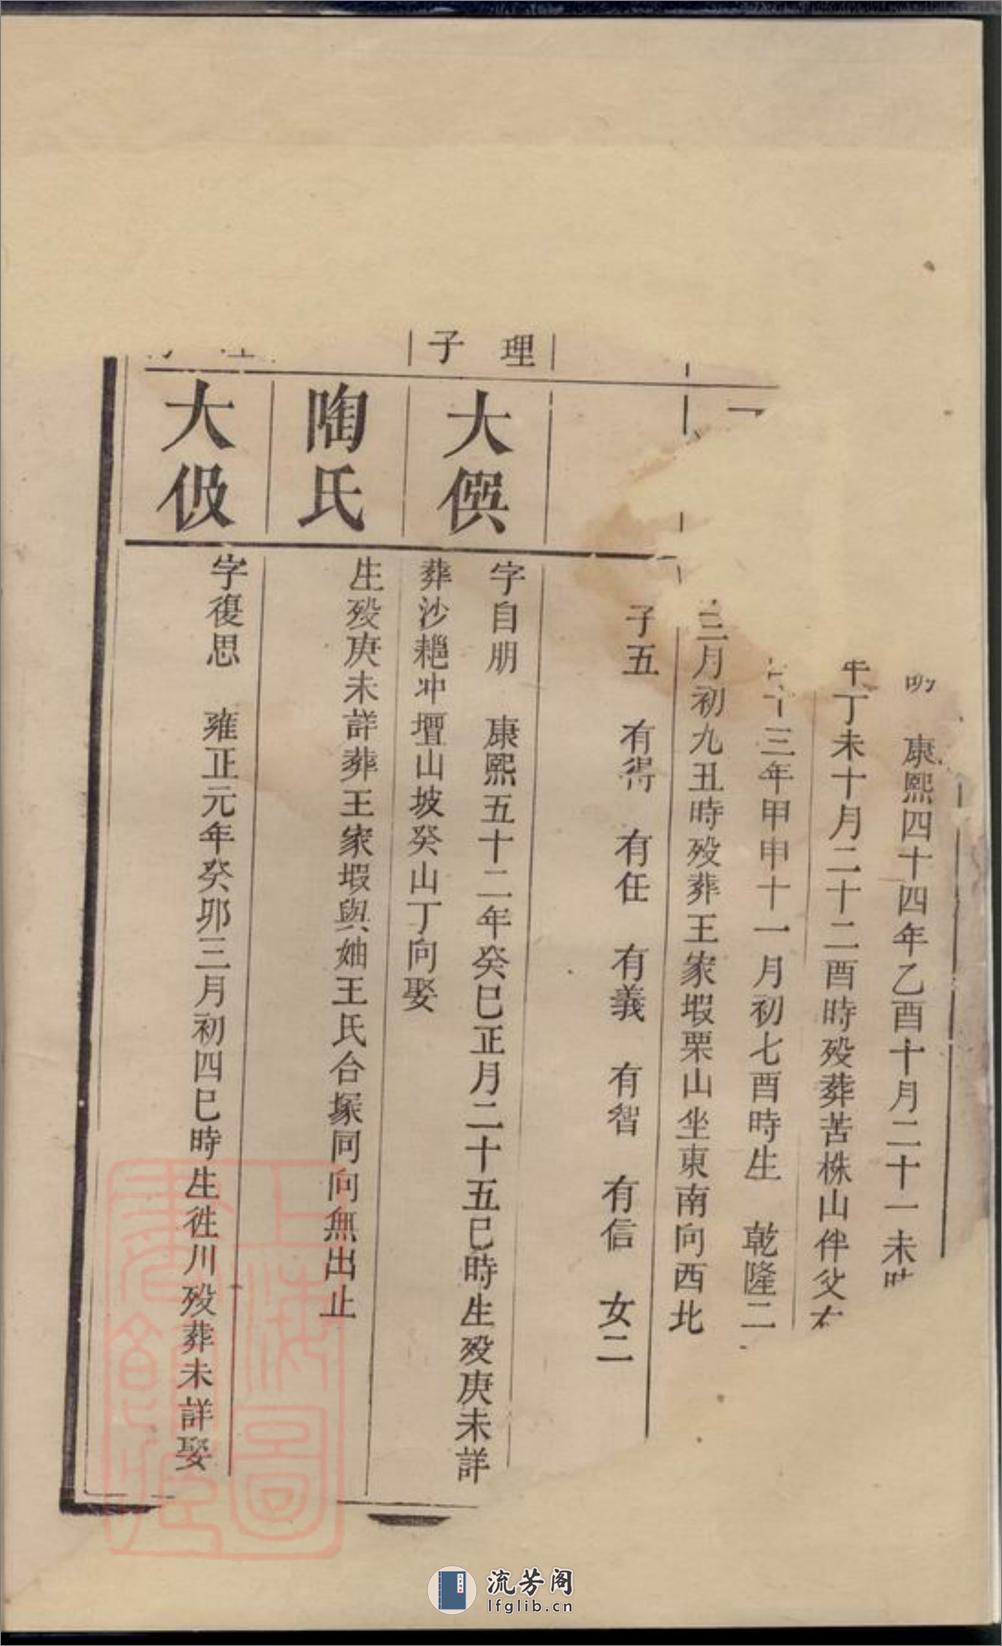 康熙四十四年乙酉十月二十一未時
年丁未十月二十二酉時殁葬苦株山伴父右
十三年甲申十一月初七酉時生　乾隆二
三月初九丑時殁葬王家塅栗山坐東南向西北
子五　有得　有任　有義　有智　有信　女二
理子
大僎
字自朋　康熙五十二年癸巳正月二十五巳時生殁庚未詳
葬沙耙冲壇山坡癸山丁向娶
陶氏
生殁庚未詳葬王家塅與妯王氏合塚同向無出止
大伋
字復思　雍正元年癸卯三月初四巳時生徃川殁葬未詳娶
上海圖書館藏
流芳阁
lfglib.cn